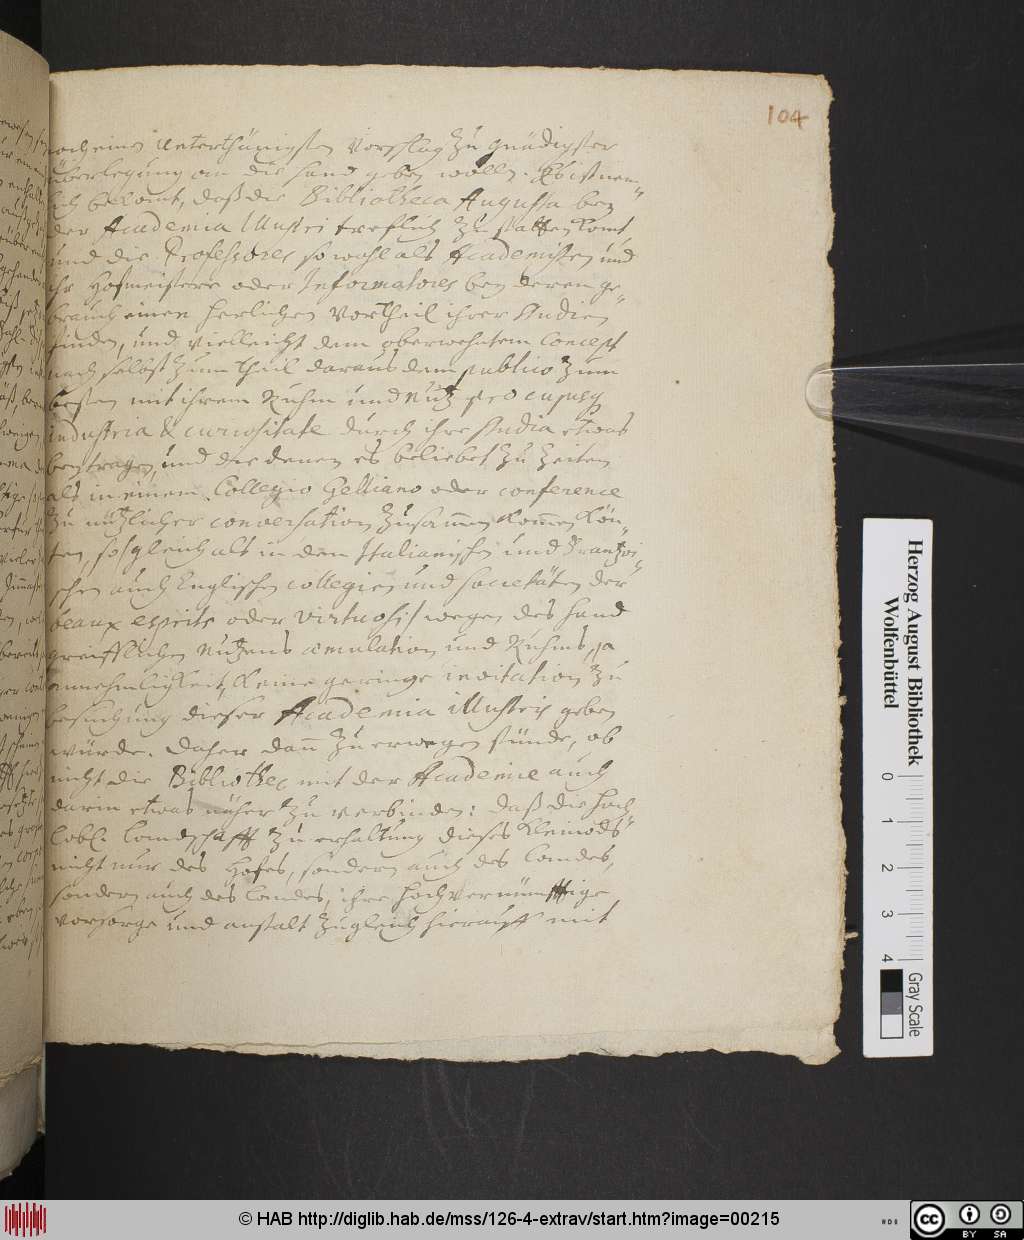 104
noch einen unterthänigsten Vorschlag zu gnädigster
überlegung an die hand geben wollen. Es ist nem-
lich bekant, daß die Bibliotheca Augusta bey
der Academia Illustri treflich zu statten komt,
und die Professores sowohl als Academisten und
ihr Hofmeistere oder Informatores bey deren ge-
brauch einen herlichen Vortheil ihrer Studien
finden, und vielleicht dem oberwehntem Concept
nach selbst zum theil daraus dem publico zum
besten mit ihrem Ruhm und Nutz pro cujusq
industria & curiositate durch ihre Studia etwas
beytragen, und die denen es beliebet zu Zeiten
als in einem Collegio Gelliano oder conference
zu nützlicher conversation zusamen komen kön-
ten, so gleich als in den Italianischen und Frantzöi-
schen auch Englischen collegien und societäten der
beaux esprits oder virtuosi wegen des hand
greifflichen nutzens æmulation und Ruhms, ja
annehmligkeit, keine geringe invitation zu
besuchung dieser Academia illustris geben
würde. Daher dan zu erwegen stünde, ob
nicht die Bibliothec mit der Academie auch
darin etwas näher zu verbinden: daß die hoch
löbl. Landschafft zu erhaltung dieses Kleinods
nicht nur des Hofes, sondern auch des Landes,
sondern auch des Landes, ihre hochvernünfftige
vorsorge und anstalt zugleich hierauff mit
Herzog August Bibliothek
Wolfenbüttel
0 1 2 3 4
Gray Scale
© HAB http://diglib.hab.de/mss/126-4-extrav/start.htm?image=00215
cc BY SA